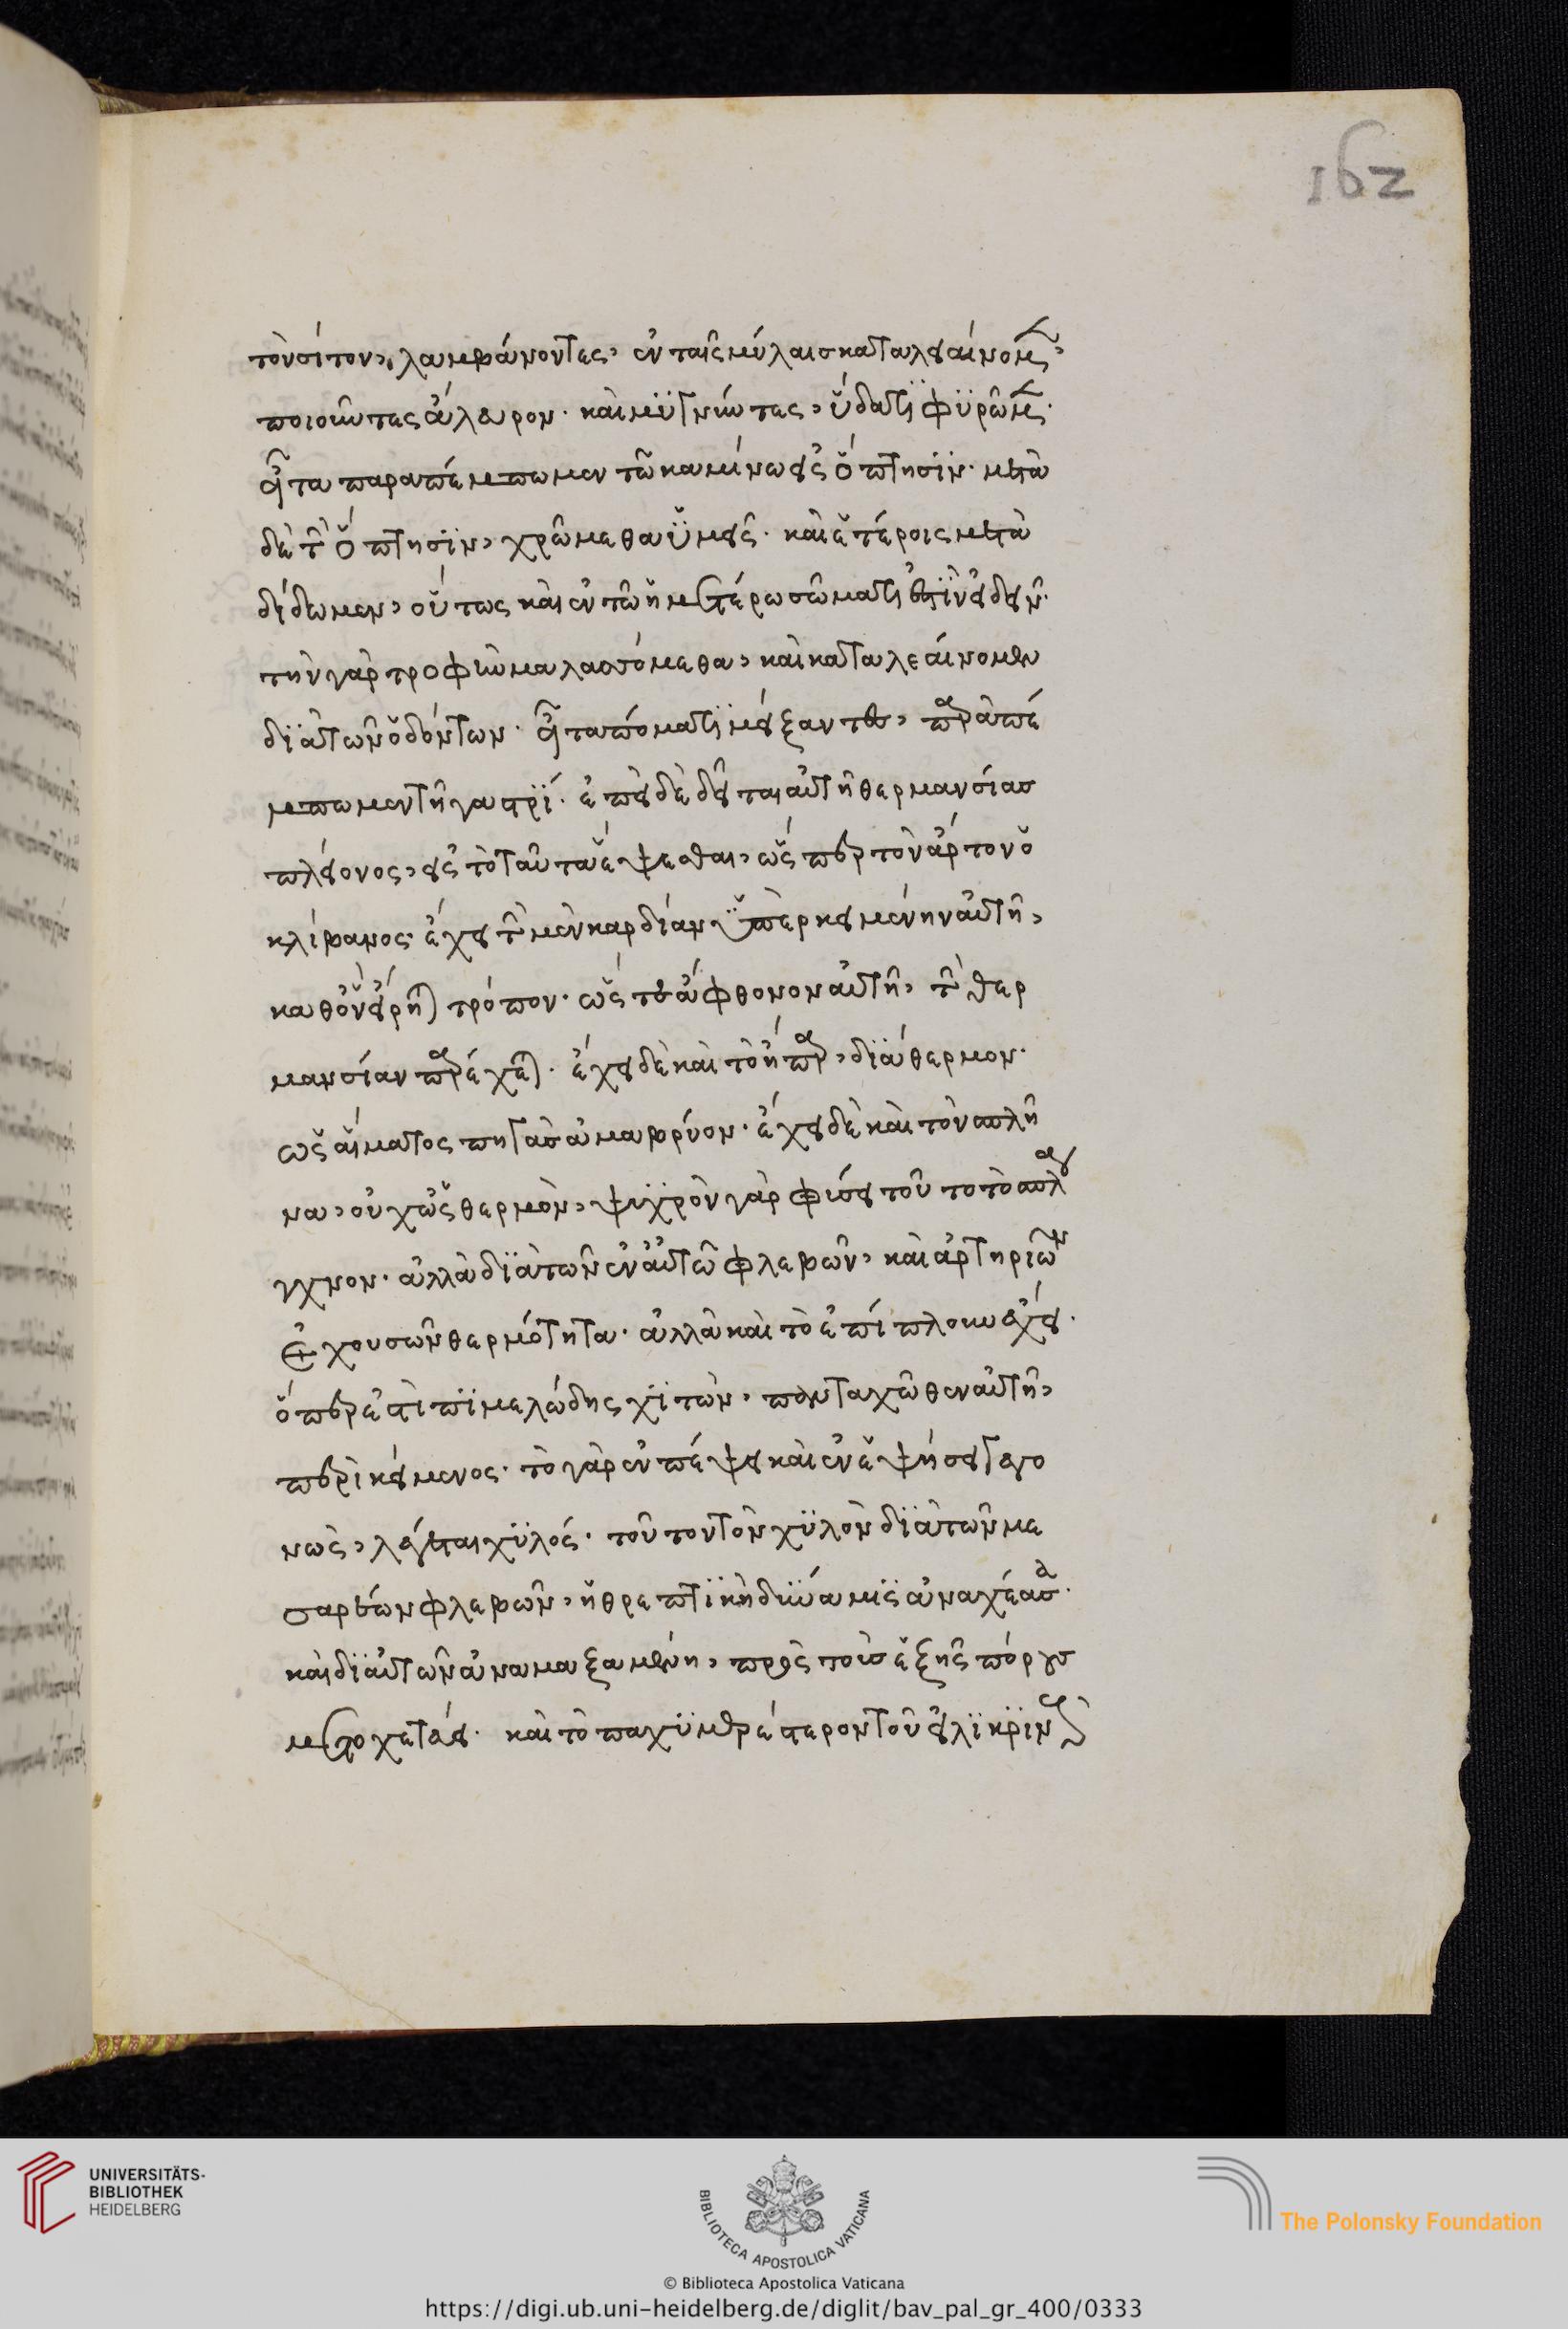 162
τὸν σίτον, λαμβάνοντες, ἐν ταῖς μύλαις καταλεαίνομεν,
ποιοῦντες ἄλευρον. καὶ μιγνύντες, ὕδατι φυρῶμεν.
εἶτα παραπέμπωμεν τῶ καμίνω εἰς ὄπτησιν. μετὰ
δὲ τὴν ὄπτησιν, χρώμεθα ὑμεῖς. καὶ ἑτέροις μετὰ
δίδωμεν, οὕτως καὶ ἐν τῶ ἡμετέρω σώματι ἐστὶν ἰδεῖν.
τὴν γὰρ τροφὴν μαλασσόμεθα, καὶ καταλεαίνομεν
διὰ τῶν ὀδόντων. εἶτα πόματι μίξαντες, παραπέ
μπωμεν τῆ γαστρί. ἐπεὶ δὲ δεῖται αὐτὴ θερμανσίας
πλείονος, εἰς τὸ ταῦτα ἕψεσθαι, ὥσπερ τὸν ἄρτον ὁ
κλίβανος. ἔχει τὴν μὲν καρδίαν ὑπερκειμένην αὐτῆ,
καθ ὃν εἴρηται τρόπον. ὥστε ἄφθονον αὐτῆ, τὴν θερ
μανσίαν παρέχεται. ἔχει δὲ καὶ τὸ ἧπαρ, διάθερμον.
ὡς αἵματος πηγὰς ἀναβρύον. ἔχει δὲ καὶ τὸν σπλῆ
να, οὐχ ὡς θερμὸν, ψυχρὸν γὰρ φύσει τοῦτο τὸ σπλά
γχνον. ἀλλὰ διὰ τῶν ἐν αὐτῶ φλεβῶν, καὶ ἀρτηριῶν
ἐχουσῶν θερμότητα. ἀλλὰ καὶ τὸ ἐπίπλοκον ἔχει.
ὅπερ ἐστὶ πιμελώδης χιτὼν, πανταχῶθεν αὐτῆ,
περικείμενος. τὸ γὰρ ἐν πέψει καὶ ἐν ἑψήσει γεγο
νὼς, λέγεται χυλός. τοῦτον τὸν χυλὸν διὰ τῶν με
σαρέων φλεβῶν, ἡ θρεπτικὴ δύναμις ἀναχέασα.
καὶ δι αὐτῶν ἀναμαξαμένη, πρὸς τοῖς ἑξῆς πόροις
μετοχετεύει. καὶ τὸ παχυμερέστερον τοῦ εἰλικρινοῦς
UNIVERSITÄTS-
BIBLIOTHEK
HEIDELBERG
BIBLIOTECA APOSTOLICA VATICANA
The Polonsky Foundation
© Biblioteca Apostolica Vaticana
https://digi.ub.uni-heidelberg.de/diglit/bav_pal_gr_400/0333